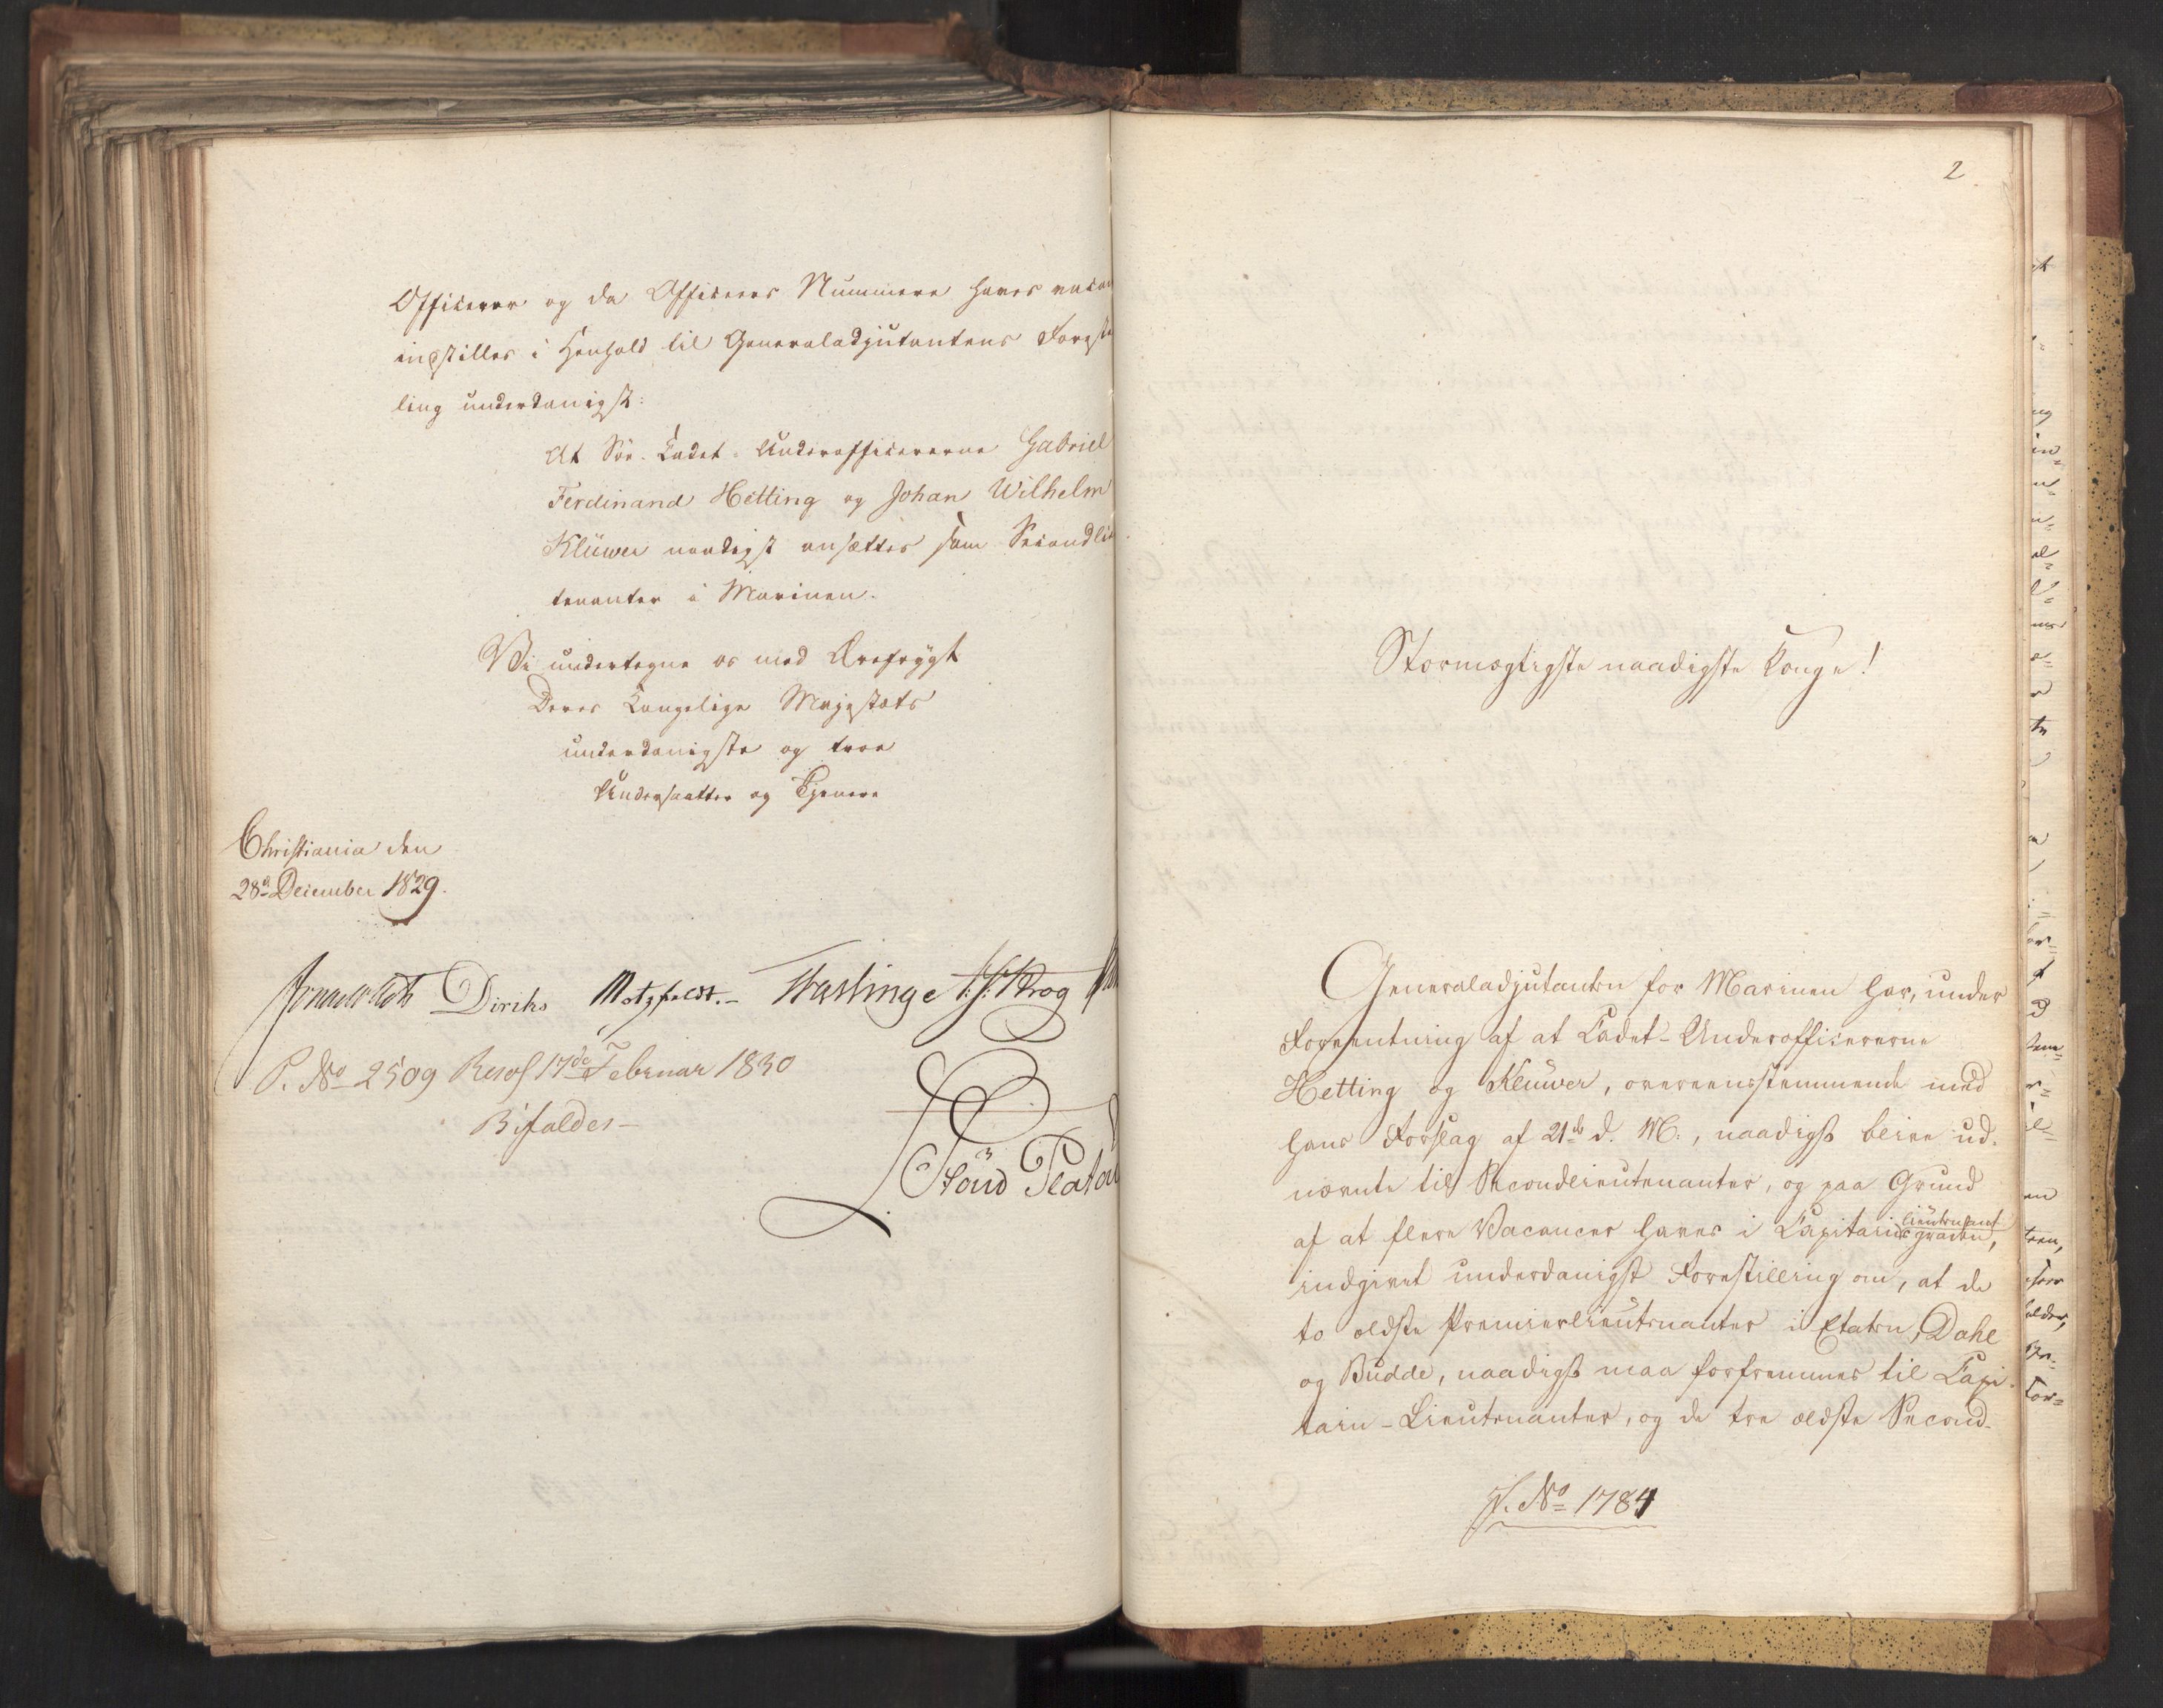 Officerer og da Officeers Nummere haves vacan
instilles i Henhold til Generaladjutantens Forestil
ling underdanigst:
At Söe-Cadet-Underofficererne Gabriel
Ferdinand Hetting og Johan Wilhelm
Klüwer naadigst ansættes som Secondlieu
tenanter i Marinen.
Vi undertegne os med Ærefrygt
Deres Kongelige Majestæts
underdanigste og troe
Undersaatter og Tjenere
Christiania den
28d December 1829.
Diriks Motzfeldt. Fasting J. H. Krog
P. No 2509 Resol 17de Februar 1830
Bifaldes
Stånd Platou
2
Stormægtigste naadigste Konge!
Generaladjutanten for Marinen har, under
Forventning af at Cadet-Underofficererne
Hetting og Klüwer, overeensstemmende med
hans Forslag af 21de d. M:, naadigst blive ud-
nævnte til Secondlieutenanter, og paa Grund
af at flere Vacancer haves i Capitain lieutenant
graden,
indgivet underdanigst Forestilling om, at de
to ældste Premierlieutenanter i Etaten, Dahl
og Budde, naadigst maa forfremmes til Capi-
tain-Lieutenanter, og de tre ældste Second-
J. No 1784